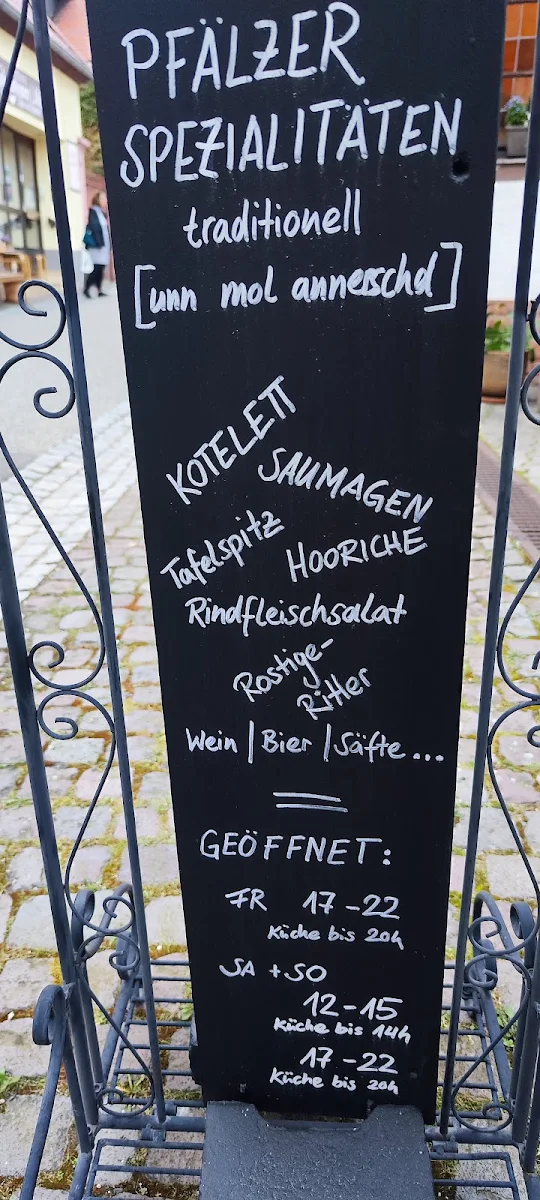 PFÄLZER
SPEZIALITÄTEN
traditionell
[unn mol annerschd]
KOTELETT
SAUMAGEN
Tafelspitz
HOORICHE
Rindfleischsalat
Rostige-
Ritter
Wein | Bier | Säfte...
GEÖFFNET:
FR 17-22
Küche bis 20h
SA + SO
12-15
Küche bis 14h
17-22
Küche bis 20h